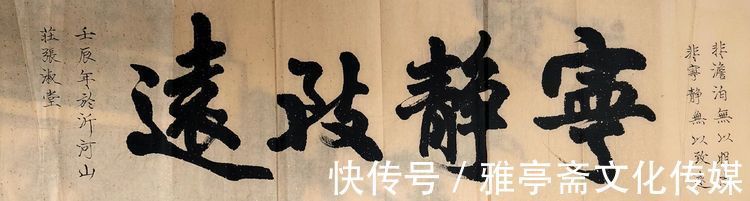 非澹泊無以明
非寧靜無以致遠
寧靜致遠
壬辰年於沂河山
莊張淑堂
快传号 / 雅亭斋文化传媒